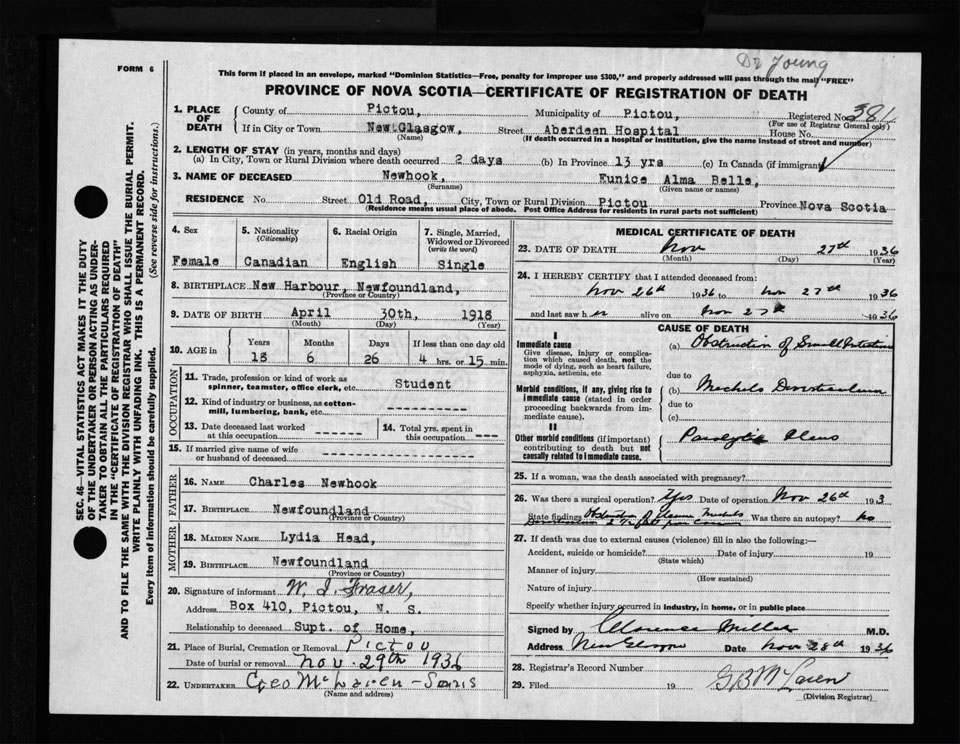 Dr Young
FORM 6
This form if placed in an envelope, marked "Dominion Statistics—Free, penalty for improper use $300," and properly addressed will pass through the mail "FREE"
PROVINCE OF NOVA SCOTIA—CERTIFICATE OF REGISTRATION OF DEATH
1. PLACE OF DEATH
County of Pictou, Municipality of Pictou, Registered No. 381
(For use of Registrar General only)
If in City or Town New Glasgow, Street Aberdeen Hospital House No.
(Name) (If death occurred in a hospital or institution, give the name instead of street and number)
2. LENGTH OF STAY (in years, months and days)
(a) In City, Town or Rural Division where death occurred 2 days (b) In Province 13 yrs (c) In Canada (if immigrant)
3. NAME OF DECEASED Newhook, Eunice Alma Belle,
(Surname) (Given name or names)
RESIDENCE No. Street Old Road, City, Town or Rural Division Pictou Province Nova Scotia
(Residence means usual place of abode. Post Office Address for residents in rural parts not sufficient)
SEC. 46—VITAL STATISTICS ACT MAKES IT THE DUTY
OF THE UNDERTAKER OR PERSON ACTING AS UNDER-
TAKER TO OBTAIN ALL THE PARTICULARS REQUIRED
IN THE "CERTIFICATE OF REGISTRATION OF DEATH"
AND TO FILE THE SAME WITH THE DIVISION REGISTRAR WHO SHALL ISSUE THE BURIAL PERMIT.
WRITE PLAINLY WITH UNFADING INK. THIS IS A PERMANENT RECORD.
Every item of information should be carefully supplied. (See reverse side for instructions.)
4. Sex 5. Nationality (Citizenship) 6. Racial Origin 7. Single, Married, Widowed or Divorced (write the word)
Female Canadian English Single
8. BIRTHPLACE New Harbour, Newfoundland,
(Province or Country)
9. DATE OF BIRTH April 30th, 1918
(Month) (Day) (Year)
10. AGE in Years Months Days If less than one day old
18 6 26 4 hrs. or 15 min.
OCCUPATION
11. Trade, profession or kind of work as spinner, teamster, office clerk, etc. Student
12. Kind of industry or business, as cotton-mill, lumbering, bank, etc.
13. Date deceased last worked at this occupation
14. Total yrs. spent in this occupation
15. If married give name of wife or husband of deceased
FATHER
16. NAME Charles Newhook
17. BIRTHPLACE Newfoundland
(Province or Country)
MOTHER
18. MAIDEN NAME Lydia Head,
19. BIRTHPLACE Newfoundland
(Province or Country)
20. Signature of informant W. J. Fraser,
Address Box 410, Pictou, N. S.
Relationship to deceased Supt. of Home,
21. Place of Burial, Cremation or Removal Pictou
Date of burial or removal Nov. 29th 1936
22. UNDERTAKER Geo McLaren - Sons
(Name and address)
MEDICAL CERTIFICATE OF DEATH
23. DATE OF DEATH Nov 27th 1936
(Month) (Day) (Year)
24. I HEREBY CERTIFY that I attended deceased from:
Nov 26th 1936 to Nov 27th 1936
and last saw her alive on Nov 27th 1936
CAUSE OF DEATH
I
Immediate cause
Give disease, injury or complication which caused death, not the mode of dying, such as heart failure, asphyxia, asthenia, etc
(a) Obstruction of Small Intestine
due to
Morbid conditions, if any, giving rise to immediate cause (stated in order proceeding backwards from immediate cause).
(b) Meckels Diverticulum
due to
(c)
II
Other morbid conditions (if important) contributing to death but not causally related to immediate cause.
Paralytic Ileus
25. If a woman, was the death associated with pregnancy?
26. Was there a surgical operation? Yes Date of operation Nov 26th 193
State findings Obstruction of Ileum Meckels Diverticulum Was there an autopsy? No
27. If death was due to external causes (violence) fill in also the following:—
Accident, suicide or homicide? Date of injury 19
(State which)
Manner of injury
(How sustained)
Nature of injury
Specify whether injury occurred in industry, in home, or in public place
Signed by Clarence Miller M.D.
Address New Glasgow Date Nov 28th 1936
28. Registrar's Record Number
29. Filed 19 G B McLaren
(Division Registrar)